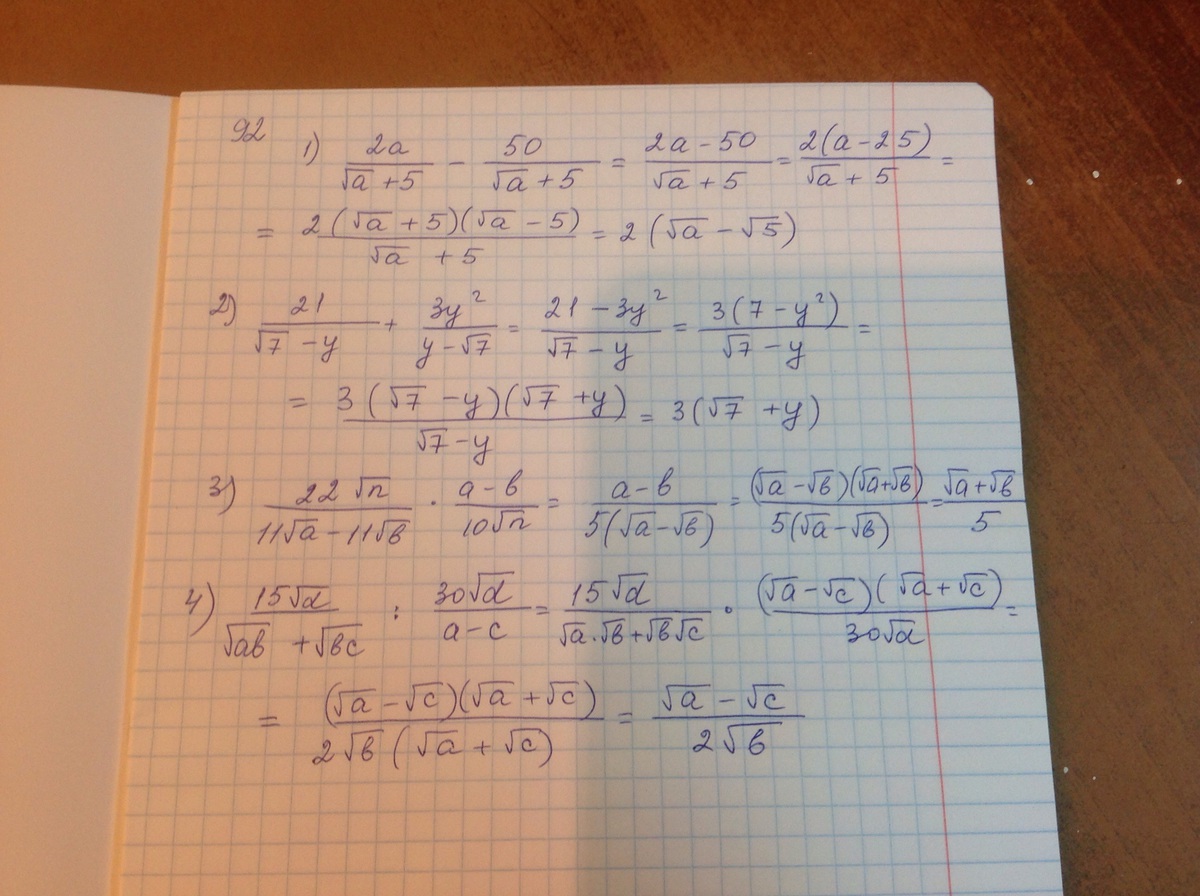 92
1) 2a/(√a + 5) − 50/(√a + 5) = (2a − 50)/(√a + 5) = 2(a − 25)/(√a + 5) =
= 2(√a + 5)(√a − 5)/(√a + 5) = 2(√a − √5)
2) 21/(√7 − y) + 3y²/(y − √7) = (21 − 3y²)/(√7 − y) = 3(7 − y²)/(√7 − y) =
= 3(√7 − y)(√7 + y)/(√7 − y) = 3(√7 + y)
3) 22√n/(11√a − 11√b) · (a − b)/(10√n) = (a − b)/(5(√a − √b)) = (√a − √b)(√a + √b)/(5(√a − √b)) = (√a + √b)/5
4) 15√d/(√ab + √bc) : 30√d/(a − c) = 15√d/(√a·√b + √b√c) · (√a − √c)(√a + √c)/(30√d) =
= (√a − √c)(√a + √c)/(2√b(√a + √c)) = (√a − √c)/(2√b)